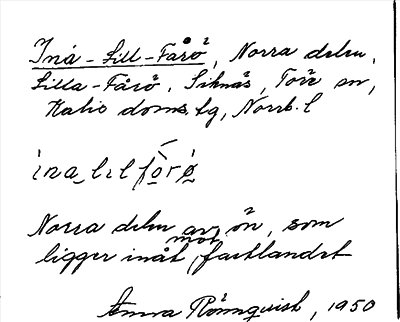 Inå-Lill-Fårö, Norra delen,
Lilla-Fårö, Siknäs, Töre sn,
Kalix doms.lg, Norrb. l
ina_lil fǫrø
Norra delen av ön, som
ligger inåt mot fastlandet
Anna Rönnquist, 1950